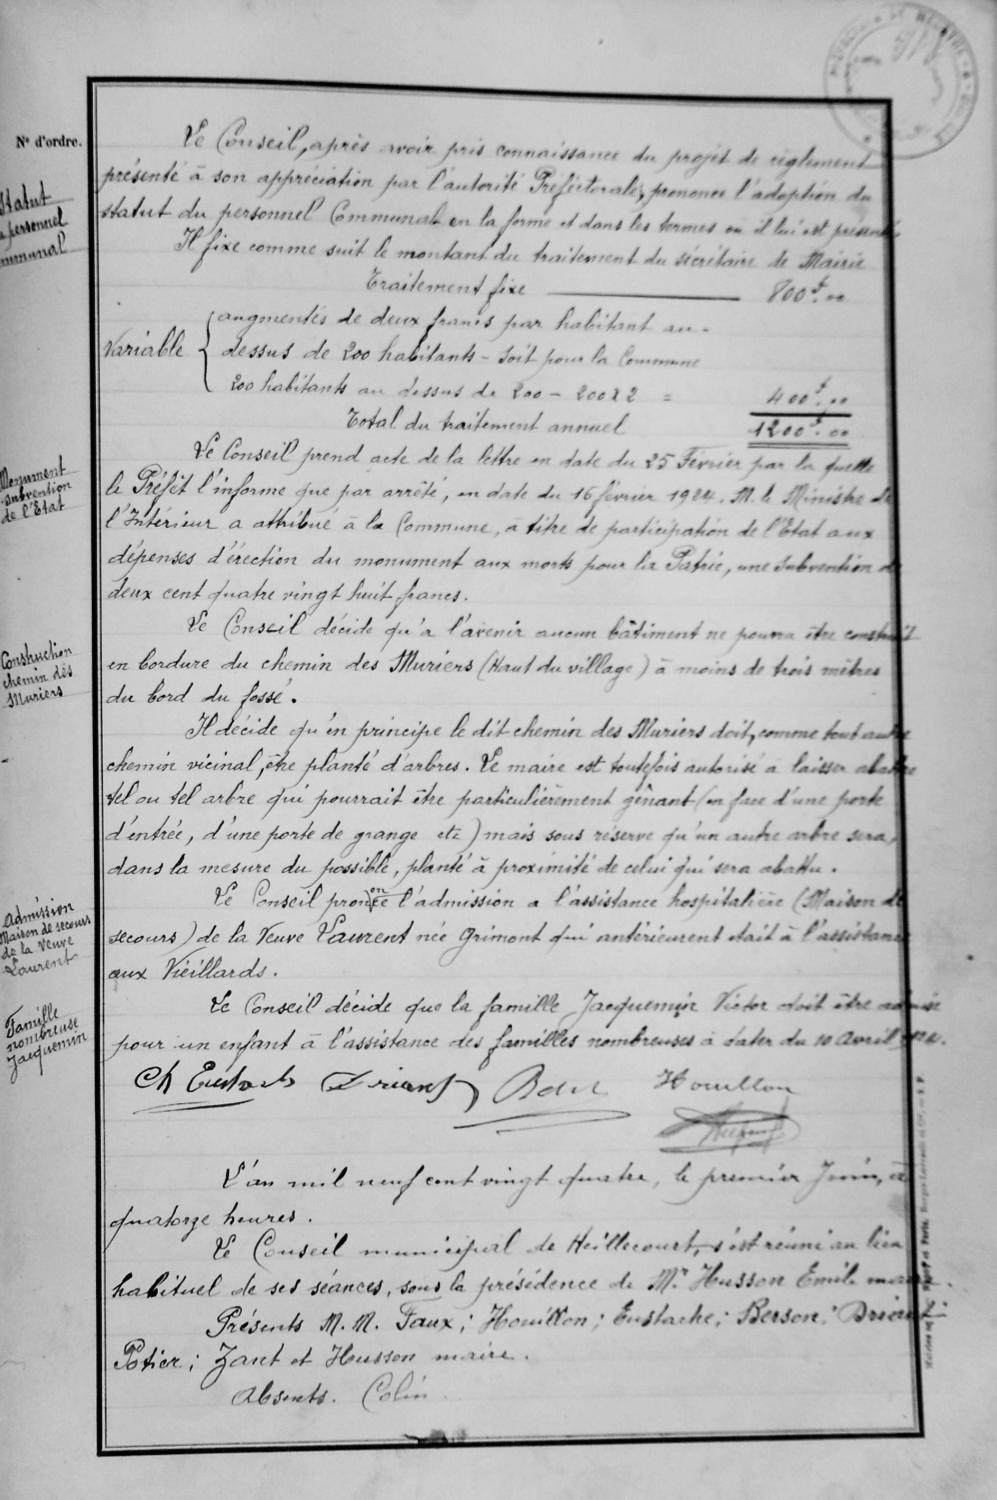 N° d'ordre.
Le Conseil, après avoir pris connaissance du projet de règlement
présenté à son appréciation par l'autorité Préfectorale, prononce l'adoption du
statut du personnel Communal en la forme et dans les termes où il lui est présenté
Statut
du personnel
communal
Il fixe comme suit le montant du traitement du sécrétaire de Mairie
Traitement fixe 800f.00
Variable
augmentés de deux francs par habitant au-
dessus de 200 habitants - soit pour la Commune
200 habitants au dessus de 200 - 200 x 2 = 400f.00
Total du traitement annuel 1200f.00
Monument
subvention
de l'Etat
Le Conseil prend acte de la lettre en date du 25 Février par la quelle
le Préfet l'informe que par arrêté, en date du 16 février 1924. M. le Ministre de
l'Intérieur a attribué à la Commune, à titre de participation de l'Etat aux
dépenses d'érection du monument aux morts pour la Patrie, une subvention de
deux cent quatre vingt huit francs.
Construction
chemin des
Muriers
Le Conseil décide qu'à l'avenir aucun bâtiment ne pourra être construit
en bordure du chemin des Muriers (Haut du village) à moins de trois mètres
du bord du fossé.
Il décide qu'en principe le dit chemin des Muriers doit, comme tout autre
chemin vicinal, être planté d'arbres. Le maire est toutefois autorisé à laisser abattre
tel ou tel arbre qui pourrait être particulièrement gênant (en face d'une porte
d'entrée, d'une porte de grange etc) mais sous réserve qu'un autre arbre sera,
dans la mesure du possible, planté à proximité de celui qui sera abattu.
Admission
Maison de secours
de la Veuve
Laurent
Le Conseil prononce l'admission a l'assistance hospitalière (Maison de
secours) de la Veuve Laurent née Grimont qui antérieurent était à l'assistance
aux Vieillards.
Famille
nombreuse
Jacquemin
Le Conseil décide que la famille Jacquemin Victor doit être admise
pour un enfant à l'assistance des familles nombreuses à dater du 10 Avril 1924.
Ch Eustache Houillon
L'an mil neuf cent vingt quatre, le premier Juin, à
quatorze heures.
Le Conseil municipal de Heillecourt, s'est réuni au lieu
habituel de ses séances, sous la présidence de Mr Husson Emile maire.
Présents M.M. Faux; Houillon; Eustache; Berson; Driant;
Potier; Zant et Husson maire.
Absents. Colin